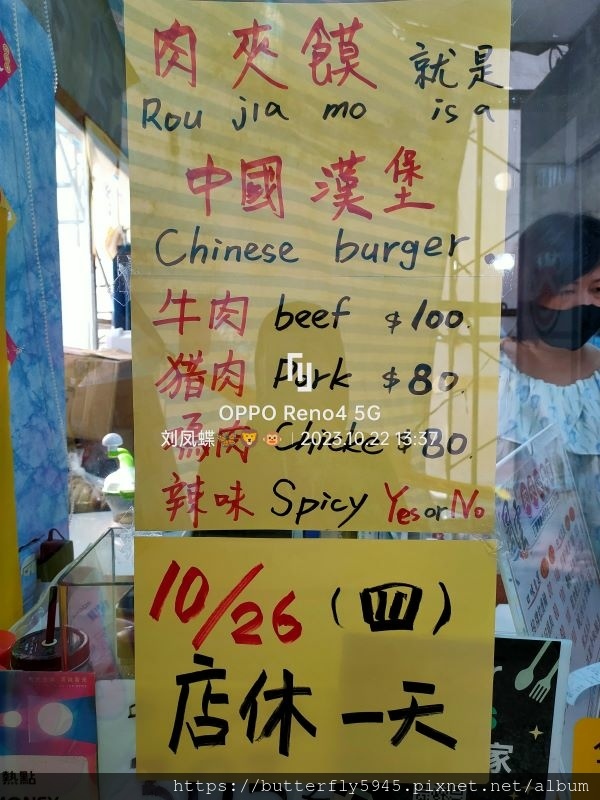 肉夾饃 就是
Rou jia mo is a
中國漢堡
Chinese burger.
牛肉 beef $100.
豬肉 Pork $80.
肉 Chicke $80.
辣味 Spicy Yes or No
OPPO Reno4 5G
刘凤蝶 2023.10.22 13:37
10/26 (四)
店休一天
家
熱點
https://butterfly5945.pixnet.net/album